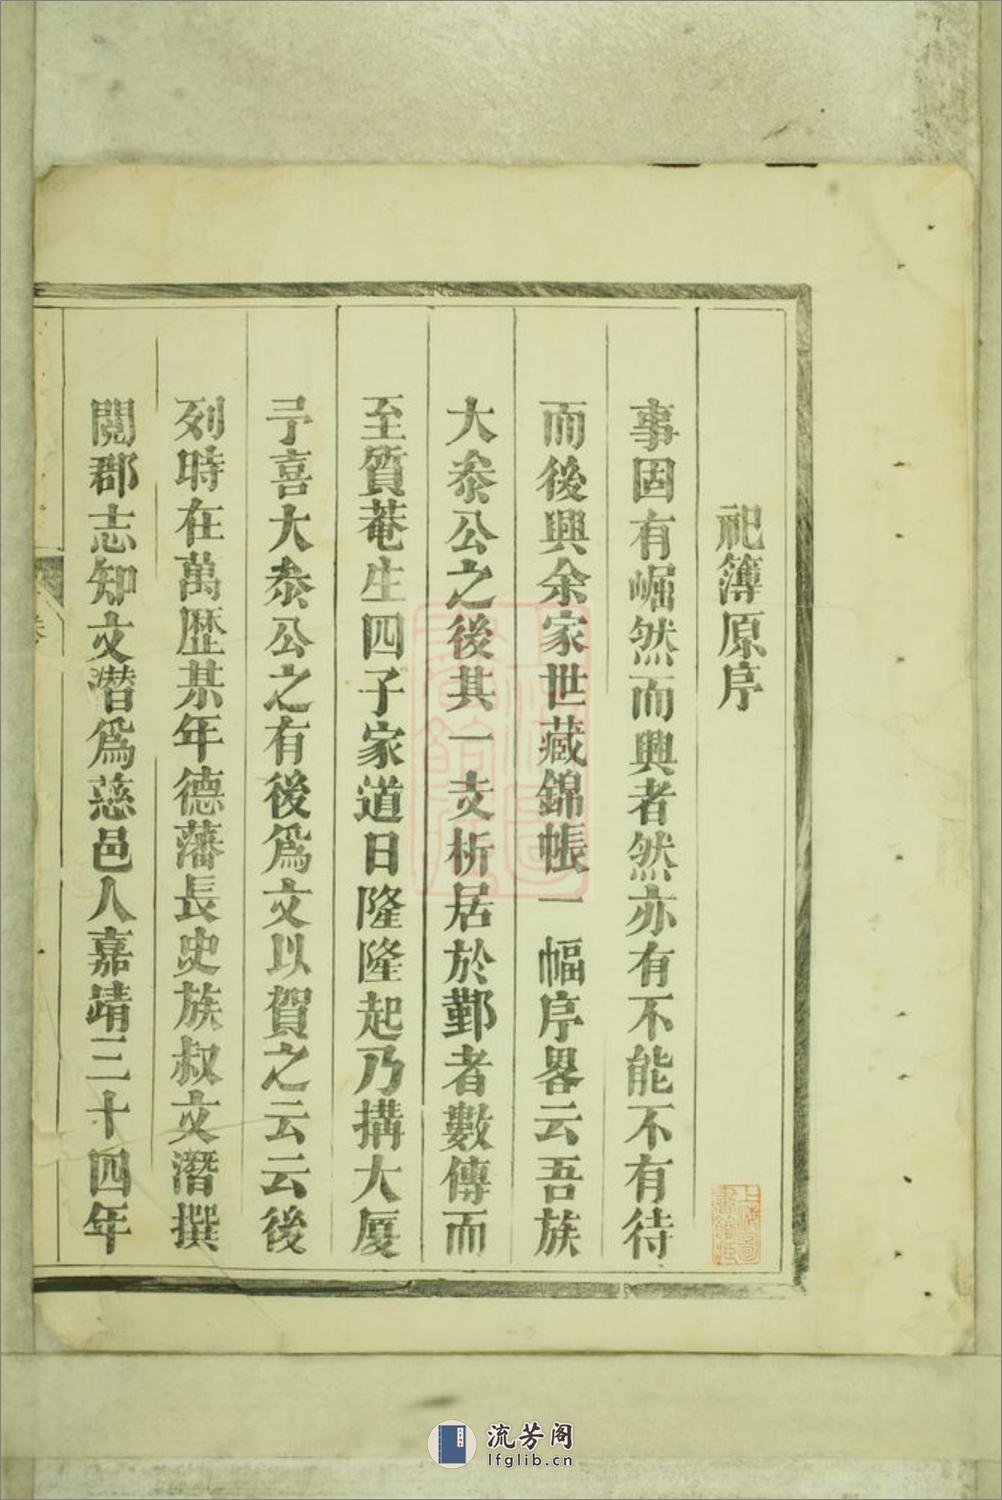 祀簿原序
事固有崛然而興者然亦有不能不有待
而後興余家世藏錦帳一幅序畧云吾族
大泰公之後其一支析居於鄞者數傳而
至質菴生四子家道日隆隆起乃搆大厦
予喜大泰公之有後爲文以賀之云云後
列時在萬歷某年德藩長史族叔文潛撰
閱郡志知文潛爲慈邑人嘉靖三十四年
流芳阁
lfglib.cn